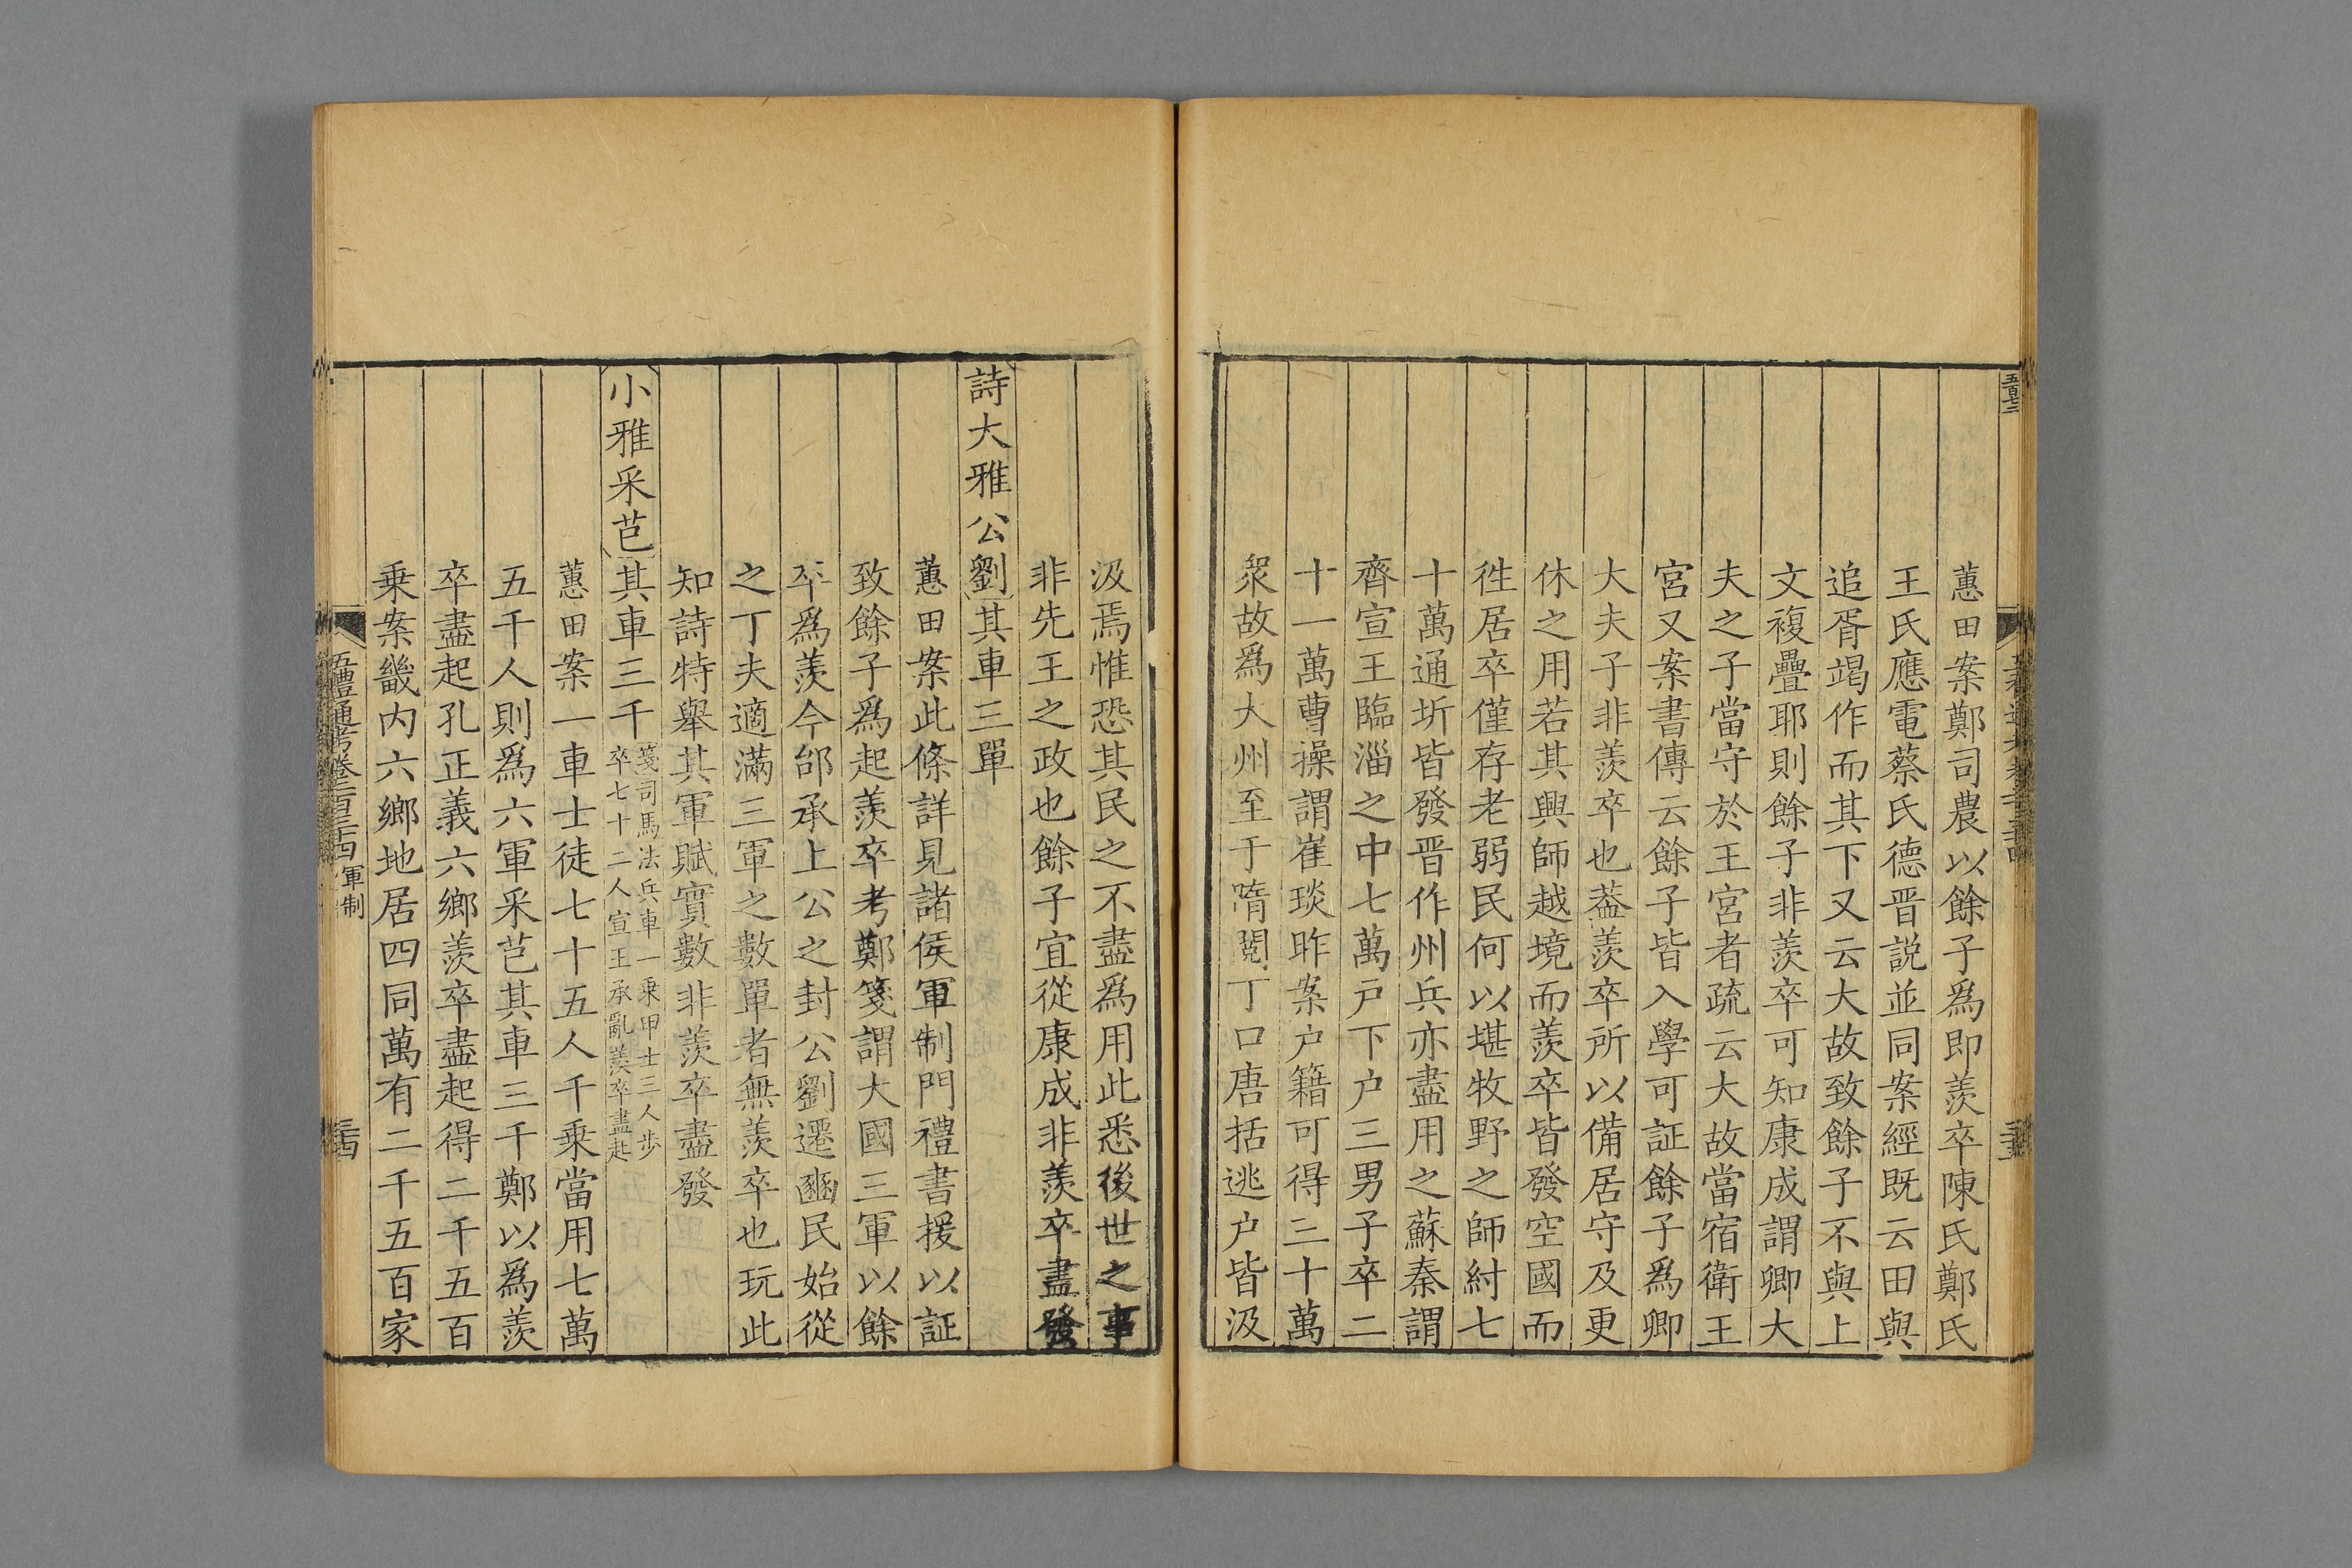 五百七二
蕙田案鄭司農以餘子爲即羨卒陳氏鄭氏
王氏應電蔡氏德晋説並同案經既云田與
追胥竭作而其下又云大故致餘子不與上
文複疊耶則餘子非羨卒可知康成謂卿大
夫之子當守於王宮者疏云大故當宿衛王
宮又案書傳云餘子皆入學可証餘子爲卿
大夫子非羨卒也葢羨卒所以備居守及更
休之用若其興師越境而羨卒皆發空國而
徃居卒僅存老弱民何以堪牧野之師紂七
十萬通圻皆發晋作州兵亦盡用之蘇秦謂
齊宣王臨淄之中七萬戸下户三男子卒二
十一萬曹操謂崔琰昨案户籍可得三十萬
衆故爲大州至于隋閱丁口唐括逃户皆汲
汲焉惟恐其民之不盡爲用此悉後世之事
非先王之政也餘子宜從康成非羨卒盡發
詩大雅公劉其車三單
蕙田案此條詳見諸侯軍制門禮書援以証
致餘子爲起羨卒考鄭箋謂大國三軍以餘
卒爲羨今邰承上公之封公劉遷豳民始從
之丁夫適滿三軍之數單者無羨卒也玩此
知詩特舉其軍賦實數非羨卒盡發
小雅采芑其車三千箋司馬法兵車一乗甲士三人歩
卒七十二人宣王承亂羨卒盡起
蕙田案一車士徒七十五人千乗當用七萬
五千人則爲六軍采芑其車三千鄭以爲羨
卒盡起孔正義六鄉羨卒盡起得二千五百
乗案畿内六鄉地居四同萬有二千五百家
五禮通考卷二百三十四 軍制